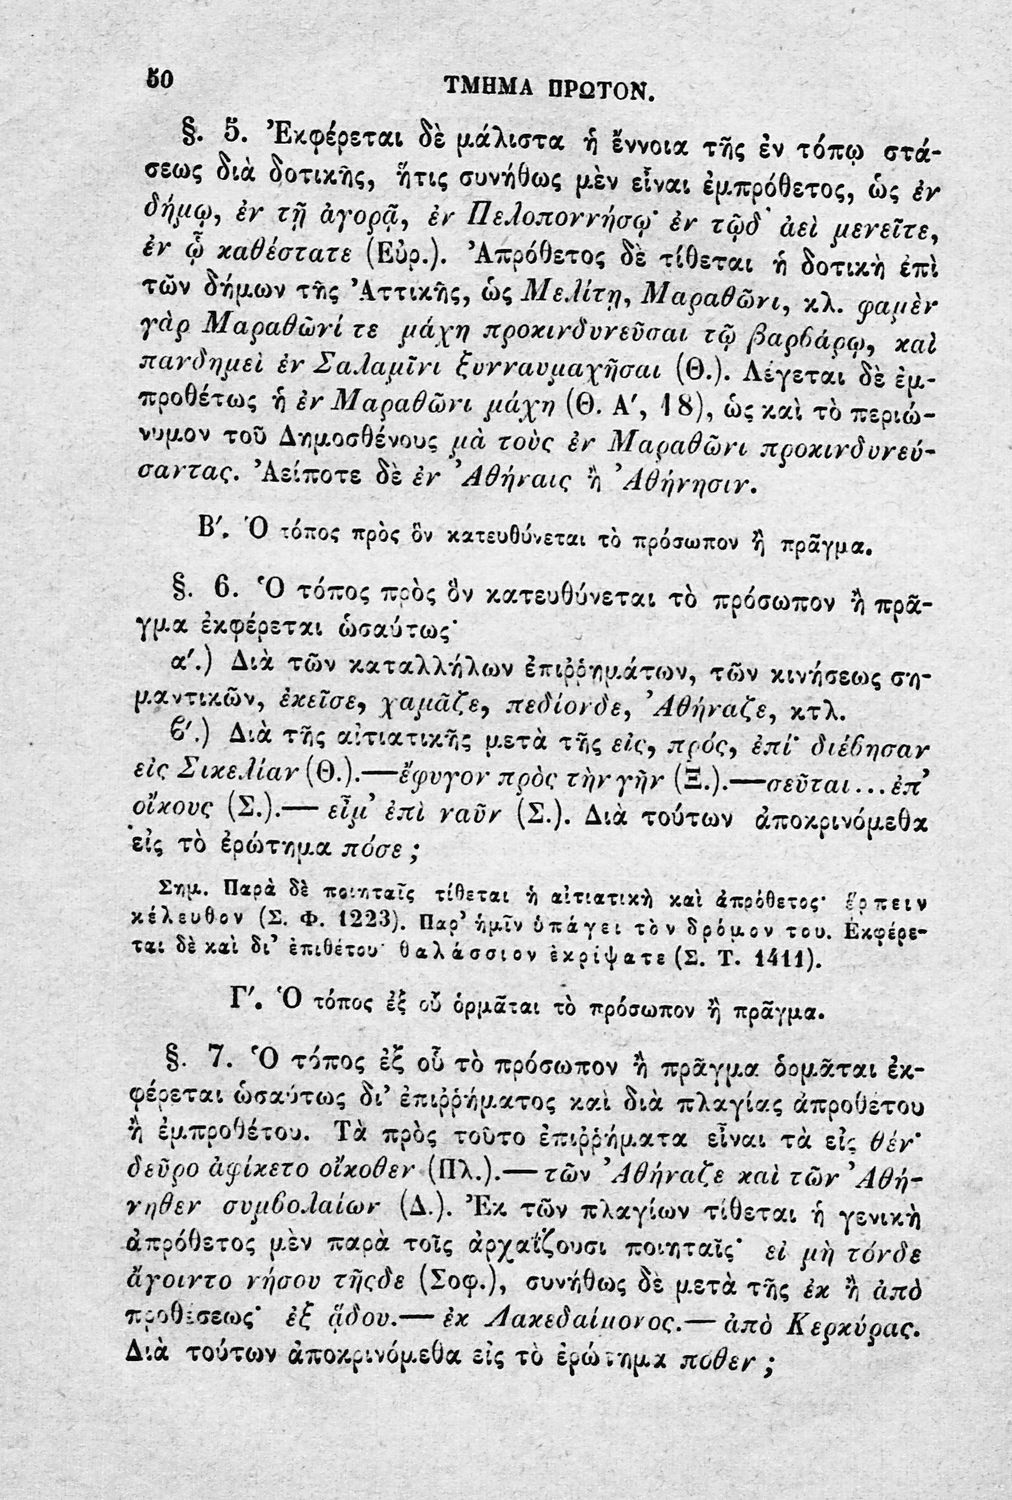 50
ΤΜΗΜΑ ΠΡΩΤΟΝ.
§. 5. Ἐκφέρεται δὲ μάλιστα ἡ ἔννοια τῆς ἐν τόπῳ στά-
σεως διὰ δοτικῆς, ἥτις συνήθως μὲν εἶναι ἐμπρόθετος, ὡς ἐν
δήμῳ, ἐν τῇ ἀγορᾷ, ἐν Πελοποννήσῳ· ἐν τῷδ᾽ ἀεὶ μενεῖτε,
ἐν ᾧ καθέστατε (Εὐρ.). Ἀπρόθετος δὲ τίθεται ἡ δοτικὴ ἐπὶ
τῶν δήμων τῆς Ἀττικῆς, ὡς Μελίτῃ, Μαραθῶνι, κλ. φαμὲν
γὰρ Μαραθῶνί τε μάχῃ προκινδυνεῦσαι τῷ βαρβάρῳ, καὶ
πανδημεὶ ἐν Σαλαμῖνι ξυνναυμαχῆσαι (Θ.). Λέγεται δὲ ἐμ-
προθέτως ἡ ἐν Μαραθῶνι μάχη (Θ. Α′, 18), ὡς καὶ τὸ περιώ-
νυμον τοῦ Δημοσθένους μὰ τοὺς ἐν Μαραθῶνι προκινδυνεύ-
σαντας. Ἀείποτε δὲ ἐν Ἀθήναις ἢ Ἀθήνησιν.
Β′. Ὁ τόπος πρὸς ὃν κατευθύνεται τὸ πρόσωπον ἢ πρᾶγμα.
§. 6. Ὁ τόπος πρὸς ὃν κατευθύνεται τὸ πρόσωπον ἢ πρᾶ-
γμα ἐκφέρεται ὡσαύτως·
α′.) Διὰ τῶν καταλλήλων ἐπιῤῥημάτων, τῶν κινήσεως ση-
μαντικῶν, ἐκεῖσε, χαμᾶζε, πεδίονδε, Ἀθήναζε, κτλ.
ϐ′.) Διὰ τῆς αἰτιατικῆς μετὰ τῆς εἰς, πρός, ἐπί· διέβησαν
εἰς Σικελίαν (Θ.).—ἔφυγον πρὸς τὴν γῆν (Ξ.).—σεῦται...ἐπ᾽
οἴκους (Σ.).— εἶμ᾽ ἐπὶ ναῦν (Σ.). Διὰ τούτων ἀποκρινόμεθα
εἰς τὸ ἐρώτημα πόσε ;
Σημ. Παρὰ δὲ ποιηταῖς τίθεται ἡ αἰτιατικὴ καὶ ἀπρόθετος· ἕρπειν
κέλευθον (Σ. Φ. 1223). Παρ᾽ ἡμῖν ὑπάγει τὸν δρόμον του. Ἐκφέρε-
ται δὲ καὶ δι᾽ ἐπιθέτου· θαλάσσιον ἐκρίψατε (Σ. Τ. 1411).
Γ′. Ὁ τόπος ἐξ οὗ ὁρμᾶται τὸ πρόσωπον ἢ πρᾶγμα.
§. 7. Ὁ τόπος ἐξ οὗ τὸ πρόσωπον ἢ πρᾶγμα ὁρμᾶται ἐκ-
φέρεται ὡσαύτως δι᾽ ἐπιῤῥήματος καὶ διὰ πλαγίας ἀπροθέτου
ἢ ἐμπροθέτου. Τὰ πρὸς τοῦτο ἐπιῤῥήματα εἶναι τὰ εἰς θέν·
δεῦρο ἀφίκετο οἴκοθεν (Πλ.).—τῶν Ἀθήναζε καὶ τῶν Ἀθή-
νηθεν συμβολαίων (Δ.). Ἐκ τῶν πλαγίων τίθεται ἡ γενικὴ
ἀπρόθετος μὲν παρὰ τοῖς ἀρχαΐζουσι ποιηταῖς· εἰ μὴ τόνδε
ἄγοιντο νήσου τῆςδε (Σοφ.), συνήθως δὲ μετὰ τῆς ἐκ ἢ ἀπὸ
προθέσεως· ἐξ ᾅδου.— ἐκ Λακεδαίμονος.— ἀπὸ Κερκύρας.
Διὰ τούτων ἀποκρινόμεθα εἰς τὸ ἐρώτημα πόθεν ;